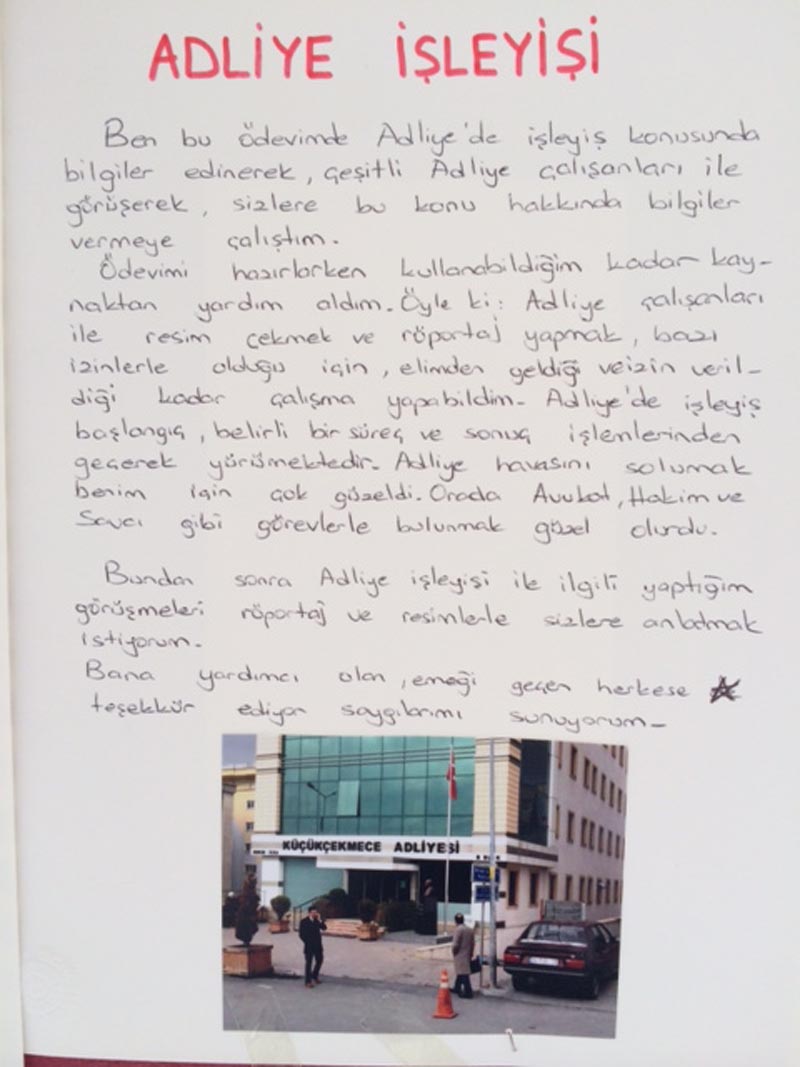 ADLİYE İŞLEYİŞİ
Ben bu ödevimde Adliye'de işleyiş konusunda
bilgiler edinerek, çeşitli Adliye çalışanları ile
görüşerek, sizlere bu konu hakkında bilgiler
vermeye çalıştım.
Ödevimi hazırlarken kullanabildiğim kadar kay-
naktan yardım aldım. Öyle ki: Adliye çalışanları
ile resim çekmek ve röportaj yapmak, bazı
izinlerle olduğu için, elimden geldiği ve izin veril-
diği kadar çalışma yapabildim. Adliye'de işleyiş
başlangıç, belirli bir süreç ve sonuç işlemlerinden
geçerek yürümektedir. Adliye havasını solumak
benim için çok güzeldi. Orada Avukat, Hakim ve
Savcı gibi görevlerle bulunmak güzel olurdu.
Bundan sonra Adliye işleyişi ile ilgili yaptığım
görüşmeleri röportaj ve resimlerle sizlere anlatmak
istiyorum.
Bana yardımcı olan, emeği geçen herkese
teşekkür ediyor saygılarımı sunuyorum-
KÜÇÜKÇEKMECE ADLİYESİ